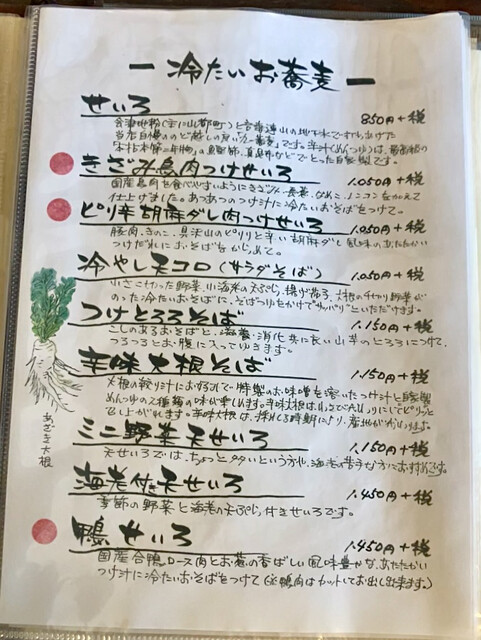 ー冷たいお蕎麦ー
せいろ 850円+税
当店自慢ののど越しの良い二八蕎麦です。
きざみ鳥肉つけせいろ 1.050円+税
国産鳥肉を食べやすいようにきざみ、長葱、なめこ、メンコンを加えて
仕上げました。あつあつのつけ汁に冷たいおそばをつけて。
ピリ辛胡麻ダレ肉つけせいろ 1.050円+税
豚肉、きのこ、具沢山のピリリと辛い胡麻ダレ風味のあたたかい
つけだれにおそばをからめて。
冷やし天コロ(サラダそば) 1.050円+税
小さく切った野菜、小海老の天ぷら、揚げ茄子、大根の千切り野菜が
のった冷たいおそばに、そばつゆをかけて"サッパリ"といただけます。
つけとろろそば 1.150円+税
こしのあるおそばと、滋養・消化共に良い山芋のとろろにつけて、
つるつるとお腹に入ってゆきます。
辛味大根そば 1.150円+税
大根の絞り汁にお好みで特製のお味噌を溶いたつけ汁と自家製
めんつゆの2種類の味が楽しめます。
ミニ野菜天せいろ 1.150円+税
天せいろでは、ちょっと多いという方や、海老の苦手な方におすすめです。
海老付き天せいろ 1.450円+税
季節の野菜と海老の天ぷら付きせいろです。
鴨せいろ 1.450円+税
国産合鴨ロース肉とお葱の香ばしい風味豊かな、あたたかい
つけ汁に冷たいおそばをつけて(※鴨肉はカットしてお出し出来ます。)
あざき大根